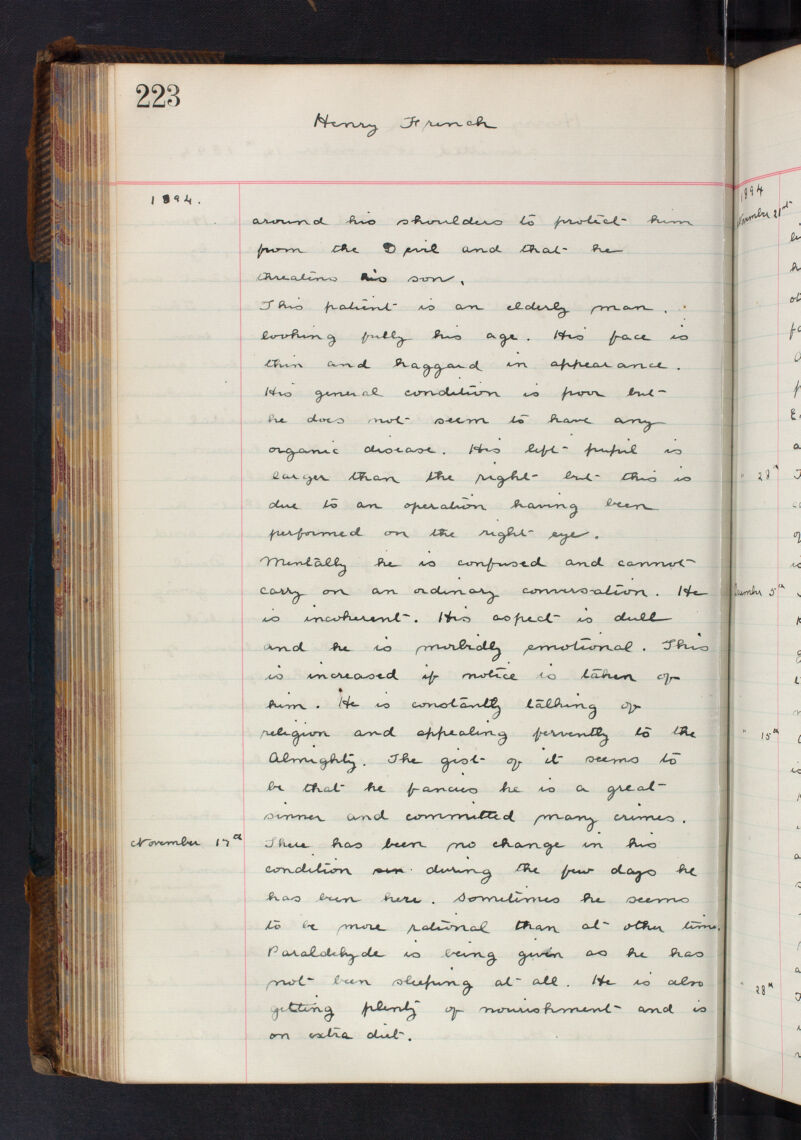 223
Henry French
1894.
around his shoulders to protect him
from the Devil and that he
threatens his son.
This patient is an elderly man.
looking fully his age. His face is
thin and haggard in appearance.
His general condition is poor but
he does not seem to have any
organic disease. His left pupil is
larger than the right but this is
due to an operation having been
performed on the right eye.
Mentally he is confused and cannot
carry on an ordinary conversation. He
is incoherent. His aspect is dull
and he is morbidly emotional. This
is increased if notice is taken of
him. He is constantly talking of
religion and appealing fervently to the
Almighty. The gist of it seems to
be that he fancies he is a great
sinner and committed many crimes.
November 17th There has been no change in his
condition during the few days he
has been here. Sometimes he seems
to be more rational than at other time.
Paraldehyde is being given as he has
not been sleeping at all. He is also
getting plenty of nourishment and is
on extra diet.
1894
November 21st
" 28th
December 5th
" 15th
" 28th